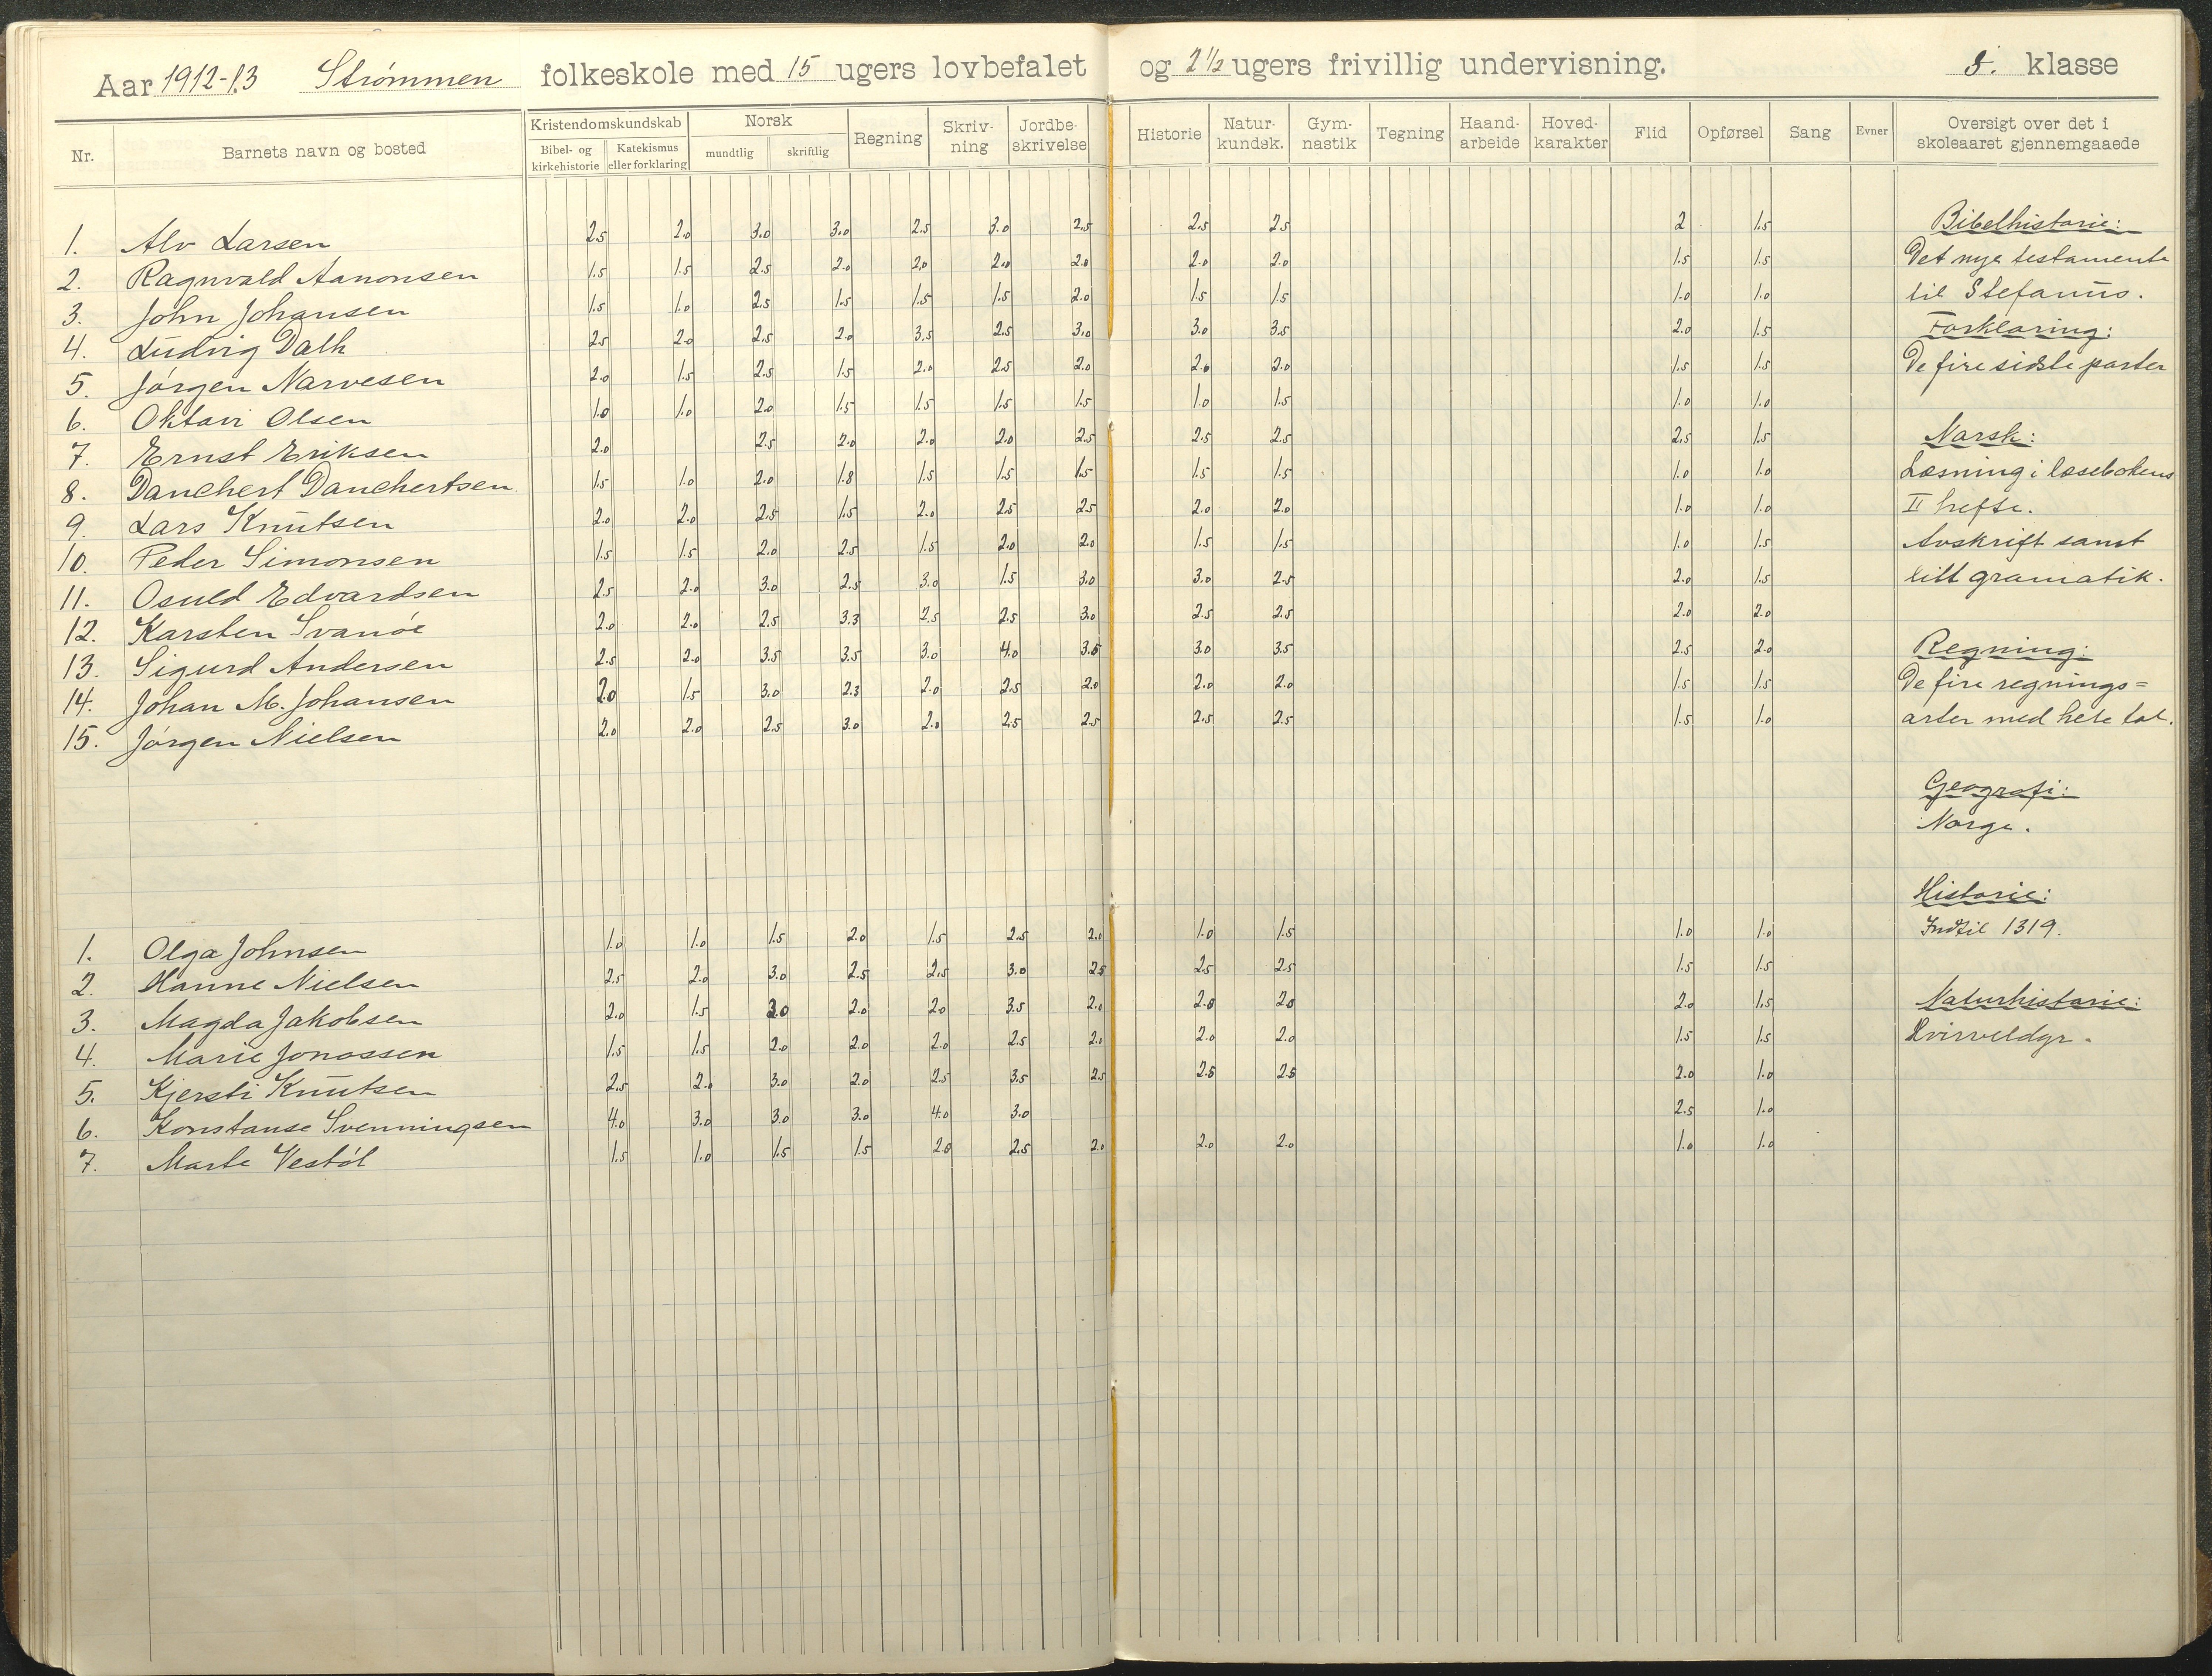 Aar 1912-13 Strømmen folkeskole med 15 ugers lovbefalet og 2½ ugers frivillig undervisning. klasse
Nr. Barnets navn og bosted Kristendomskundskab Bibel- og kirkehistorie Katekismus eller forklaring Norsk mundtlig skriftlig Regning Skriv-ning Jordbe-skrivelse Historie Natur-kundsk. Gym-nastik Tegning Haand-arbeide Hoved-karakter Flid Opførsel Sang Evner Oversigt over det i skoleaaret gjennemgaaede
1. Alv Larsen 2.5 2.0 3.0 3.0 2.5 3.0 2.5 2.5 2.5 2 1.5 Bibelhistorie:
2. Ragnvald Aanonsen 1.5 1.5 2.5 2.0 2.0 2.0 2.0 2.0 2.0 1.5 1.5 Det nye testamente
3. John Johansen 1.5 1.0 2.5 1.5 1.5 1.5 2.0 1.5 1.5 1.0 1.0 til Stefanus.
4. Ludvig Dalh 2.5 2.0 2.5 2.0 3.5 2.5 3.0 3.0 3.5 2.0 1.5 Forklaring:
5. Jørgen Narvesen 2.0 1.5 2.5 1.5 2.0 2.5 2.0 2.0 2.0 1.5 1.5 De fire sidste parter
6. Oktavi Olsen 1.0 1.0 2.0 1.5 1.5 1.5 1.5 1.0 1.5 1.0 1.0
7. Ernst Eriksen 2.0 2.5 2.0 2.0 2.0 2.5 2.5 2.5 2.5 1.5 Norsk:
8. Danchert Danchertsen 1.5 1.0 2.0 1.8 1.5 1.5 1.5 1.5 1.5 1.0 1.0 Læsning i læsebokens
9. Lars Knutsen 2.0 2.0 2.5 1.5 2.0 2.5 2.5 2.0 2.0 1.0 1.0 II hefte.
10. Peder Simonsen 1.5 1.5 2.0 2.5 1.5 2.0 2.0 1.5 1.5 1.0 1.5 Avskrift samt
11. Osuld Edvardsen 2.5 2.0 3.0 2.5 3.0 1.5 3.0 3.0 2.5 2.0 1.5 litt gramatik.
12. Karsten Svanøe 2.0 2.0 2.5 3.3 2.5 2.5 3.0 2.5 2.5 2.0 2.0
13. Sigurd Andersen 2.5 2.0 3.5 3.5 3.0 4.0 3.5 3.0 3.5 2.5 2.0 Regning:
14. Johan M. Johansen 2.0 1.5 3.0 2.3 2.0 2.5 2.0 2.0 2.0 1.5 1.5 De fire regnings=
15. Jørgen Nielsen 2.0 2.0 2.5 3.0 2.0 2.5 2.5 2.5 2.5 1.5 1.0 arter med hele tal.
Geografi:
Norge.
Historie:
1. Olga Johnsen 1.0 1.0 1.5 2.0 1.5 2.5 2.0 1.0 1.5 1.0 1.0 Indtil 1319.
2. Hanne Nielsen 2.5 2.0 3.0 2.5 2.5 3.0 2.5 2.5 2.5 1.5 1.5
3. Magda Jakobsen 2.0 1.5 2.0 2.0 3.5 2.0 2.0 2.0 2.0 1.5 Naturhistorie:
4. Marie Jonassen 1.5 1.5 2.0 2.0 2.0 2.5 2.0 2.0 2.0 1.5 1.5 Hvirveldyr.
5. Kjersti Knutsen 2.5 2.0 3.0 2.0 2.5 3.5 2.5 2.5 2.5 2.0 1.0
6. Konstanse Svenningsen 4.0 3.0 3.0 3.0 4.0 3.0 2.5 1.0
7. Marte Vestøl 1.5 1.0 1.5 1.5 2.0 2.5 2.0 2.0 2.0 1.0 1.0